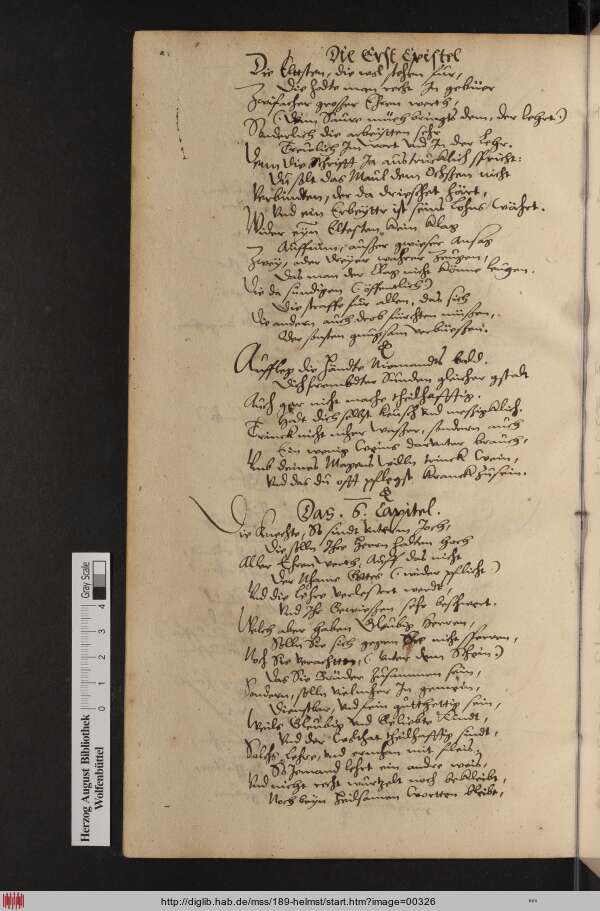 Die Erst Epistel
Die Eltesten, die wol stehen fur,
Die halte man recht In gebüer
Zwifacher grosser Ehren werth,
(Dem Saure müeh bringts dem, der lehrt.)
Sonderlich die arbeytten sehr
Treulich Im wort vnd In der Lehr.
Denn die Schrifft Ja austrucklich spricht:
Du solt das Maul dem Ochssen nicht
Verbinden, der da dreschet hart,
Vnd ein Erbeytter ist seins Lohns währt.
Wider eyn Eltesten kein Klag
Auffnim, ausser gewieser Ansag
Zwey, oder dreyer wahrer Zeugen,
Das man der Clag nicht könne leugen.
Die da sundigen (öffentlich)
Die straffe fur allen, das sich
Die andern auch drob furchten müssen,
Aufleg die Händte Niemandts bald.
Dich frembdter Sunden glicher gstalt
Auch gar nicht mache theilhafftig.
Halt dich selbst keusch vnd messigklich.
Trinck nicht mher Wasser, sondern auch
Ein wenig Weins darunter brauch,
Vmb deines Magens willn trinck Wein,
Vnd das du offt pflegst kranck zusein.
Das. 6. Capitel.
Die Knechte, So sindt vnterm Joch,
Die solln Ihre Herrn halten hoch
Aller Ehren werth, Auff das nicht
Der Nhame Gottes (wider pflicht)
Vnd die Lehre verlestert werdt,
Vnd Ihr Gewissen sehr beschwert.
Welch aber haben Gleubig Herren,
Solln Sie sich gegen Sie nicht sperren,
Noch Sie verachtten, (vnter dem Schein)
Das Sie Brüder zusammen sein,
Sondern, solln vielmher In gemein,
Dienstbar, vnd fein gutthettig sein,
Weils Gleubig vnd Geliebte sindt,
Vnd der Wolthat theilhafftig sindt,
Solchs Lehre, vnd ermhan mit fleis,
So Jemand lehrt ein andre weis,
Vnd nicht recht wurtzelt noch bekleibt,
Noch beyn heilsamen Wortten bleibt,
Herzog August Bibliothek
Wolfenbüttel
0 1 2 3 4
Gray Scale
http://diglib.hab.de/mss/189-helmst/start.htm?image=00326